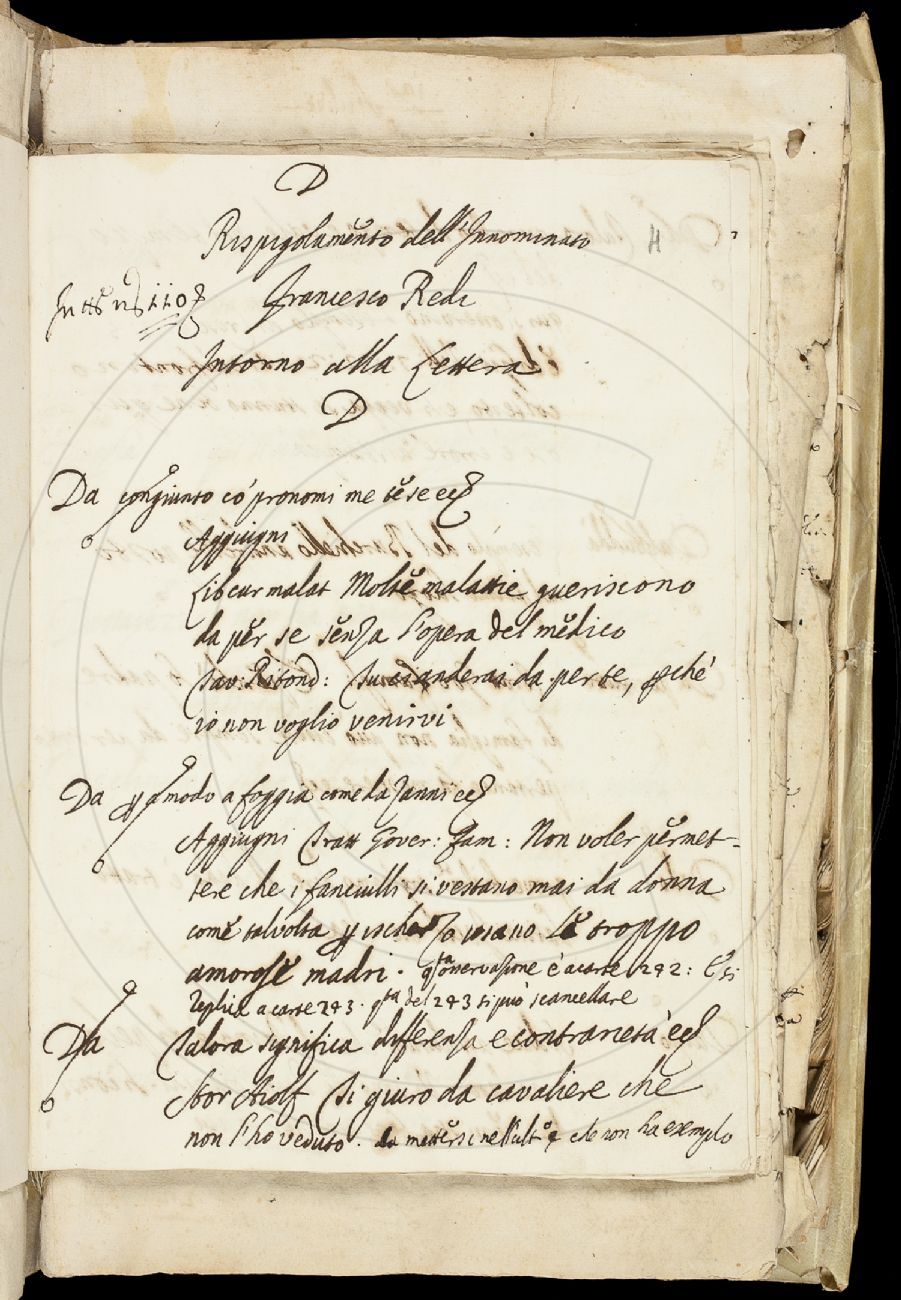 D
Rispigolamento dell'Innominato
H
Francesco Redi
Intorno alla Lettera
D
Da congiunto co' pronomi me te se ecc
Aggiugni
Libcurmalat Molte malattie gueriscono
da per se senza l'opera del medico
Tav. Riton: Tu ci anderai da per te, pchè
io non voglio venirvi
Da p modo a foggia come da Zanni ecc
Aggiugni Tratt Gover: Fam: Non voler permet-
tere che i fanciulli si vestano mai da donna
come talvolta p ischerzo usano le troppo
amorose madri. qta osservazione è a carte 242: E si
replica a carte 243. qta del 243 si può scancellare
Da Talora significa differenza e contrarietà ecc
Stor Aiolf Ti giuro da cavaliere che
non l'ho veduto. da mettersi nell'ult° che non ha exemplo